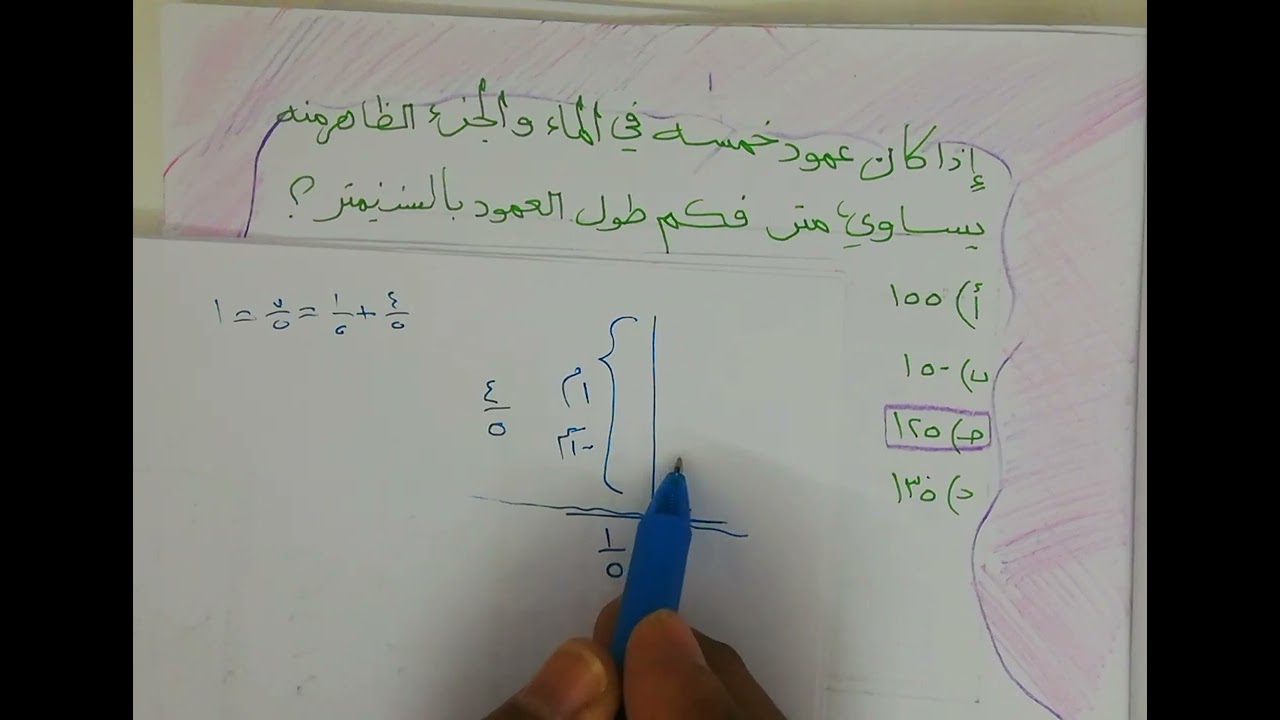 إذا كان عمود خمسه في الماء والجزء الظاهر منه
يساوي ١ متر فكم طول العمود بالسنتيمتر ؟
أ) ١٥٥
ب) ١٥٠
جـ) ١٢٥
د) ١٣٥
٤/٥ + ١/٥ = ٥/٥ = ١
٤/٥
١م
١/٥